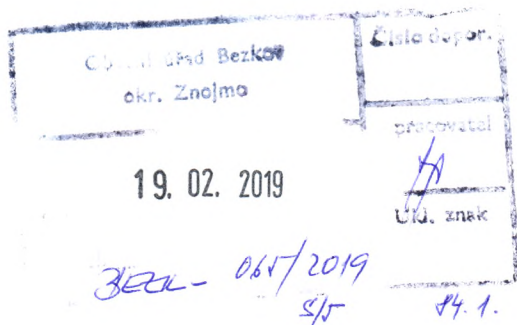 Obecní úřad Bezkov
okr. Znojmo
Číslo dopor.
zpracovatel
19. 02. 2019
Ukl. znak
BEZK- 065/2019
5/5
84.1.